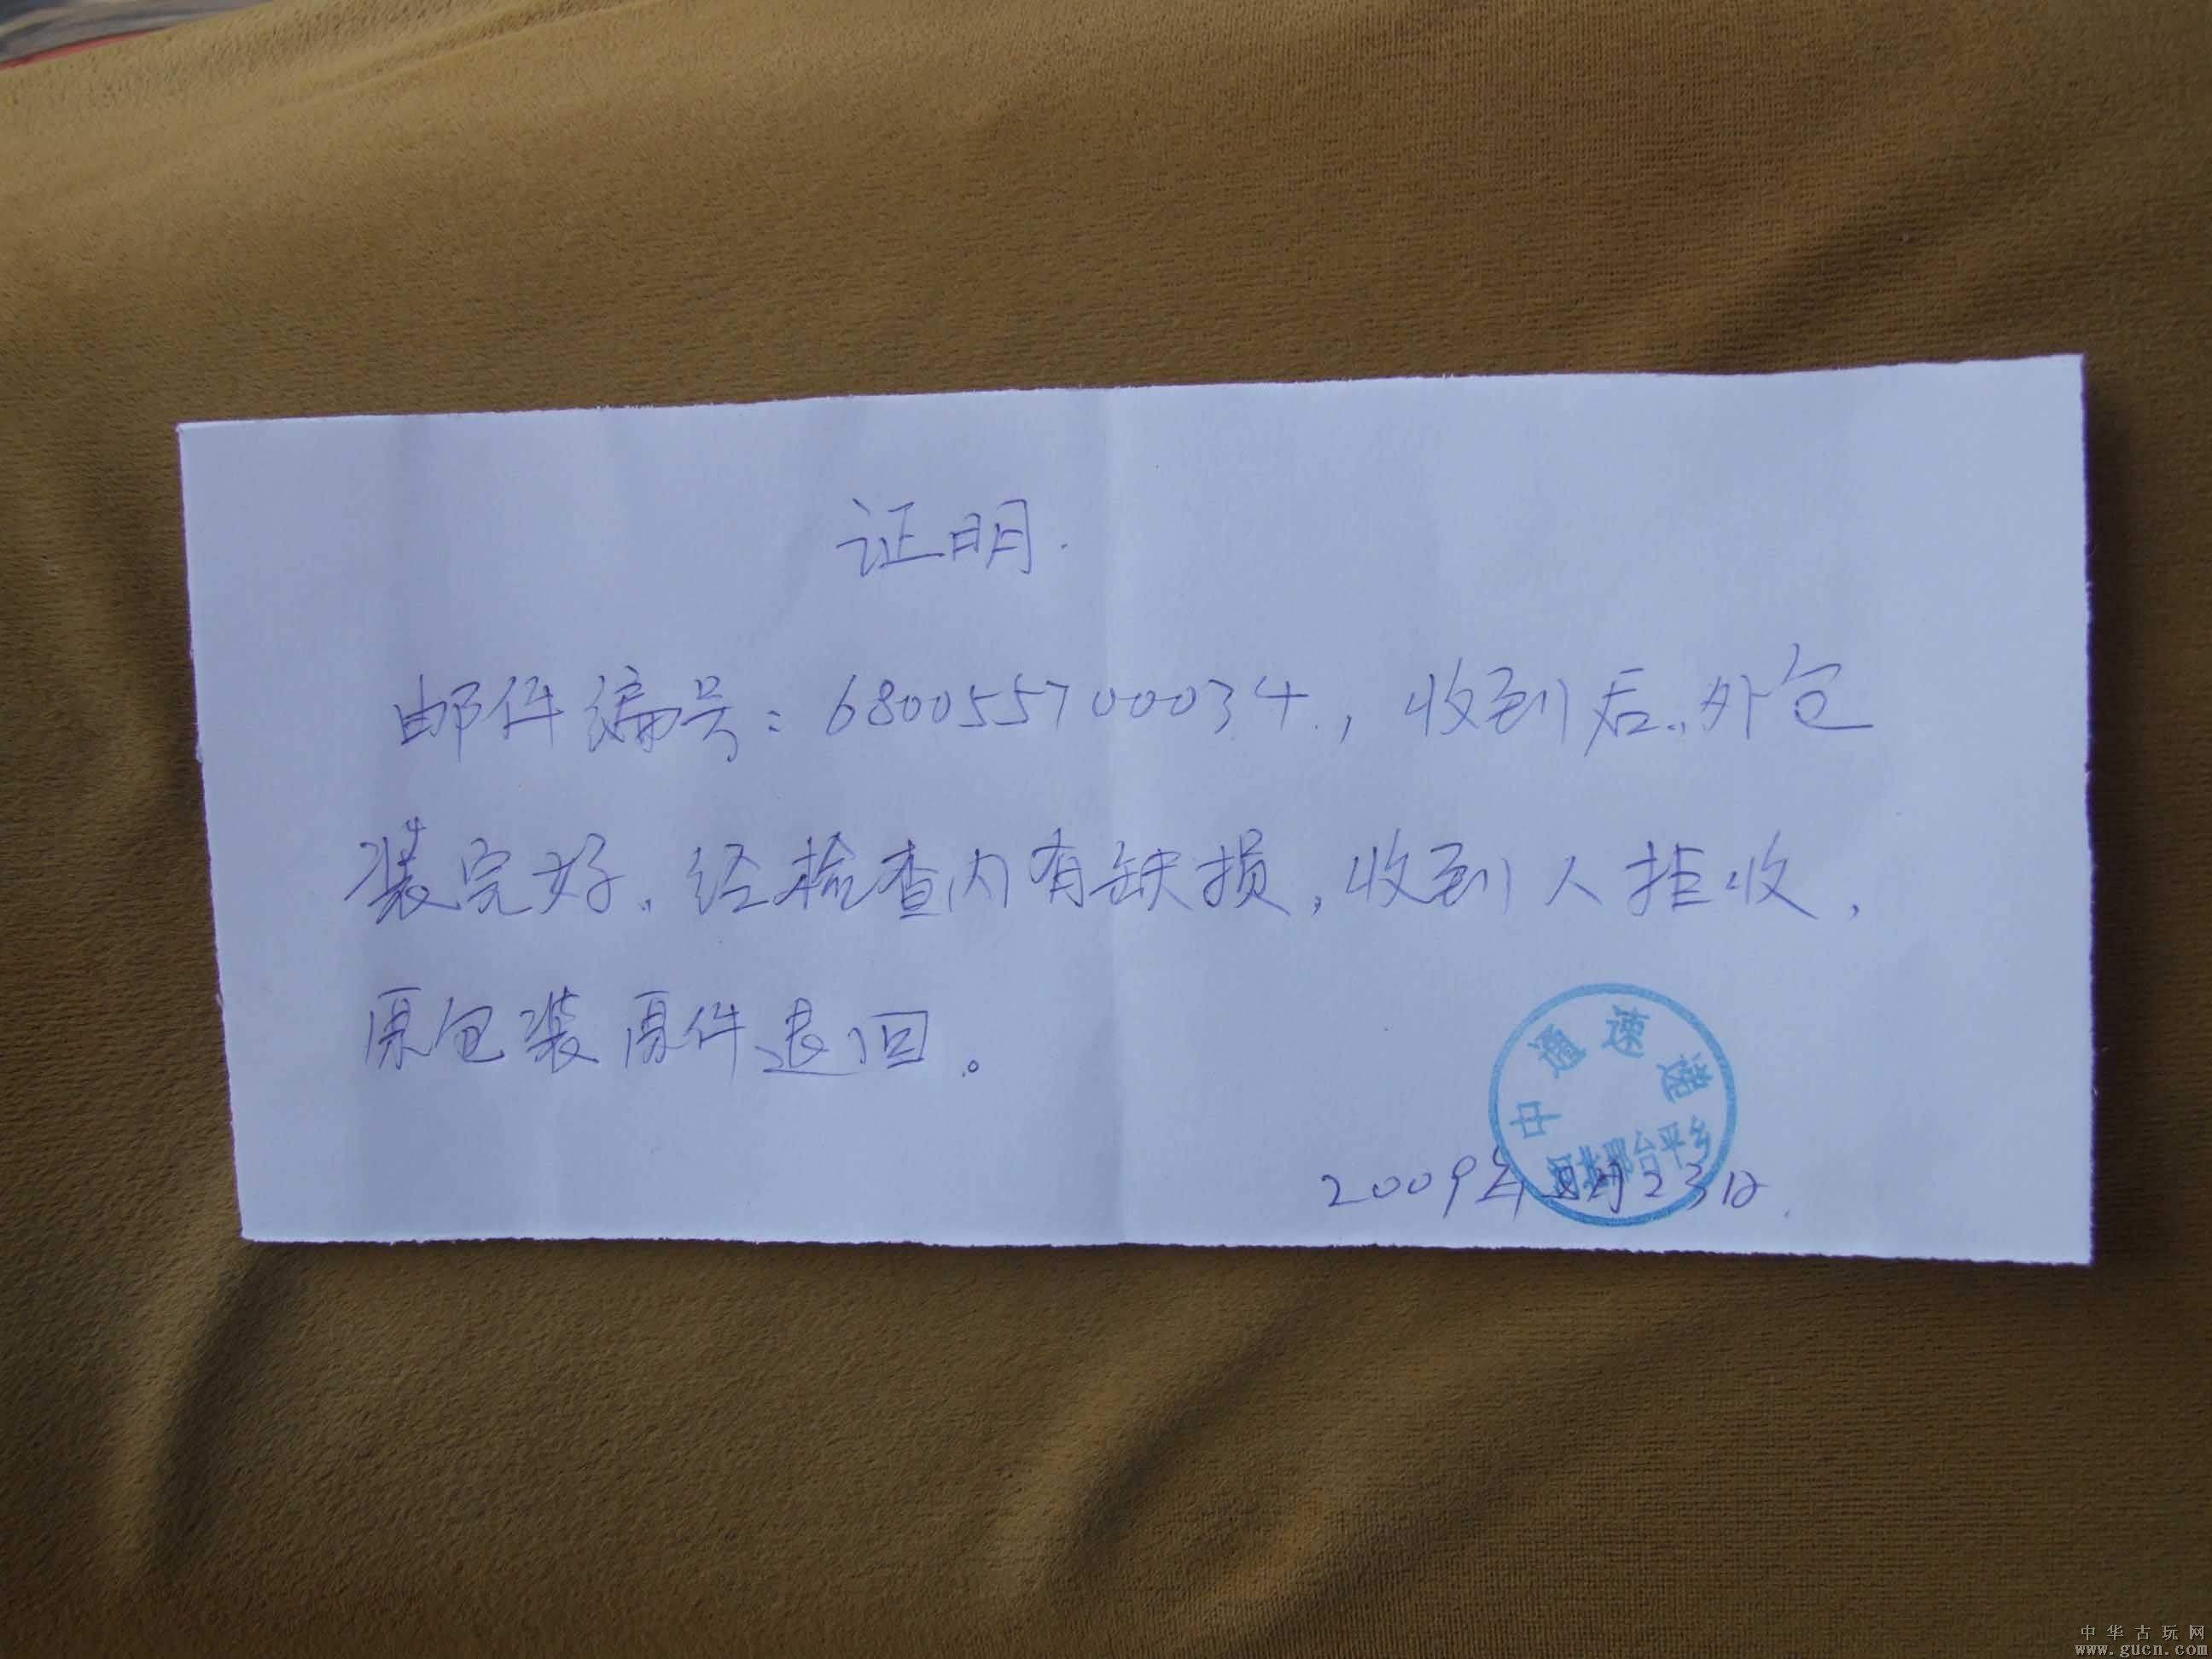 证明.
邮件编号:680055700034.,收到后.,外包
装完好.经检查内有缺损,收到人拒收,
原包装原件退回。
中通速递
河北邢台平乡
2009年 月23日.
中华古玩网
www.gucn.com